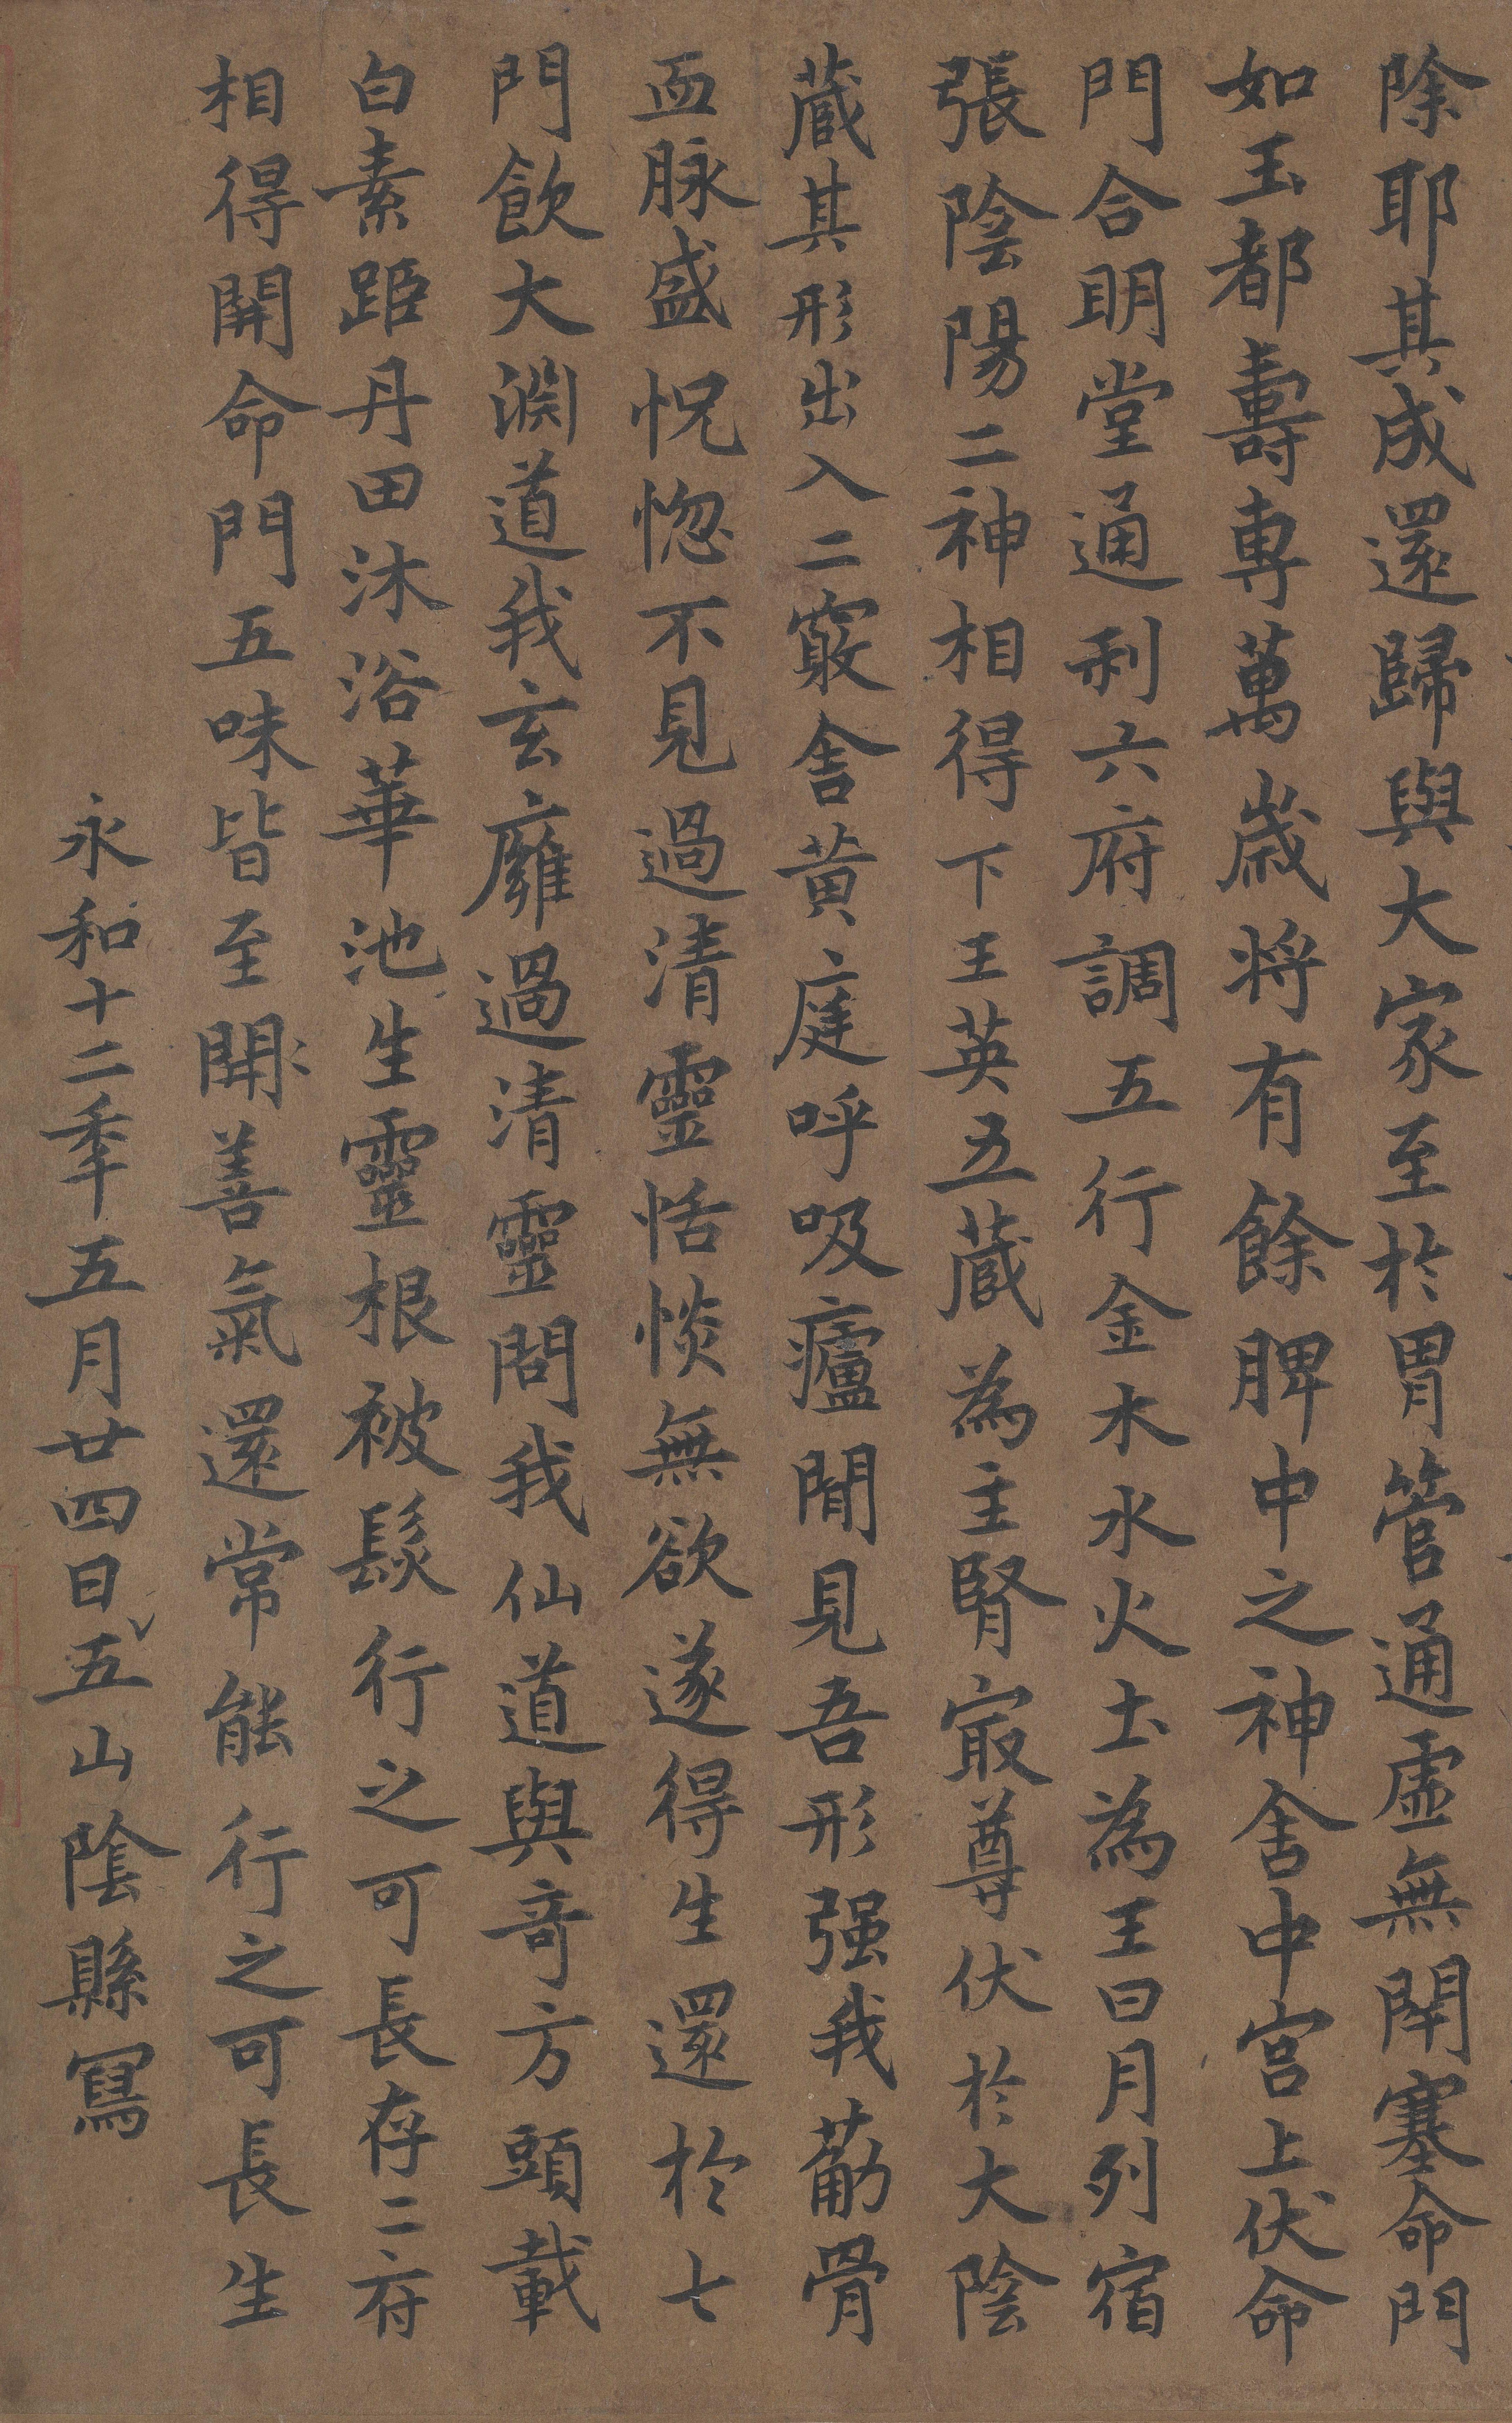 除耶其成還歸與大家至於胃管通虛無閇塞命門
如玉都壽專萬歲將有餘脾中之神舍中宮上伏命
門合明堂通利六府調五行金木水火土為王日月列宿
張陰陽二神相得下王英五藏為主腎最尊伏於大陰
藏其形出入二竅舍黃庭呼吸廬間見吾形强我葡骨
血脉盛怳惚不見過清靈恬惔無欲遂得生還於七
門飲大淵道我玄廱過清靈問我仙道與奇方頭載
白素距丹田沐浴華池生靈根被髮行之可長存二府
相得開命門五味皆至開善氣還常能行之可長生
永和十二秊五月廿四日五山陰縣寫